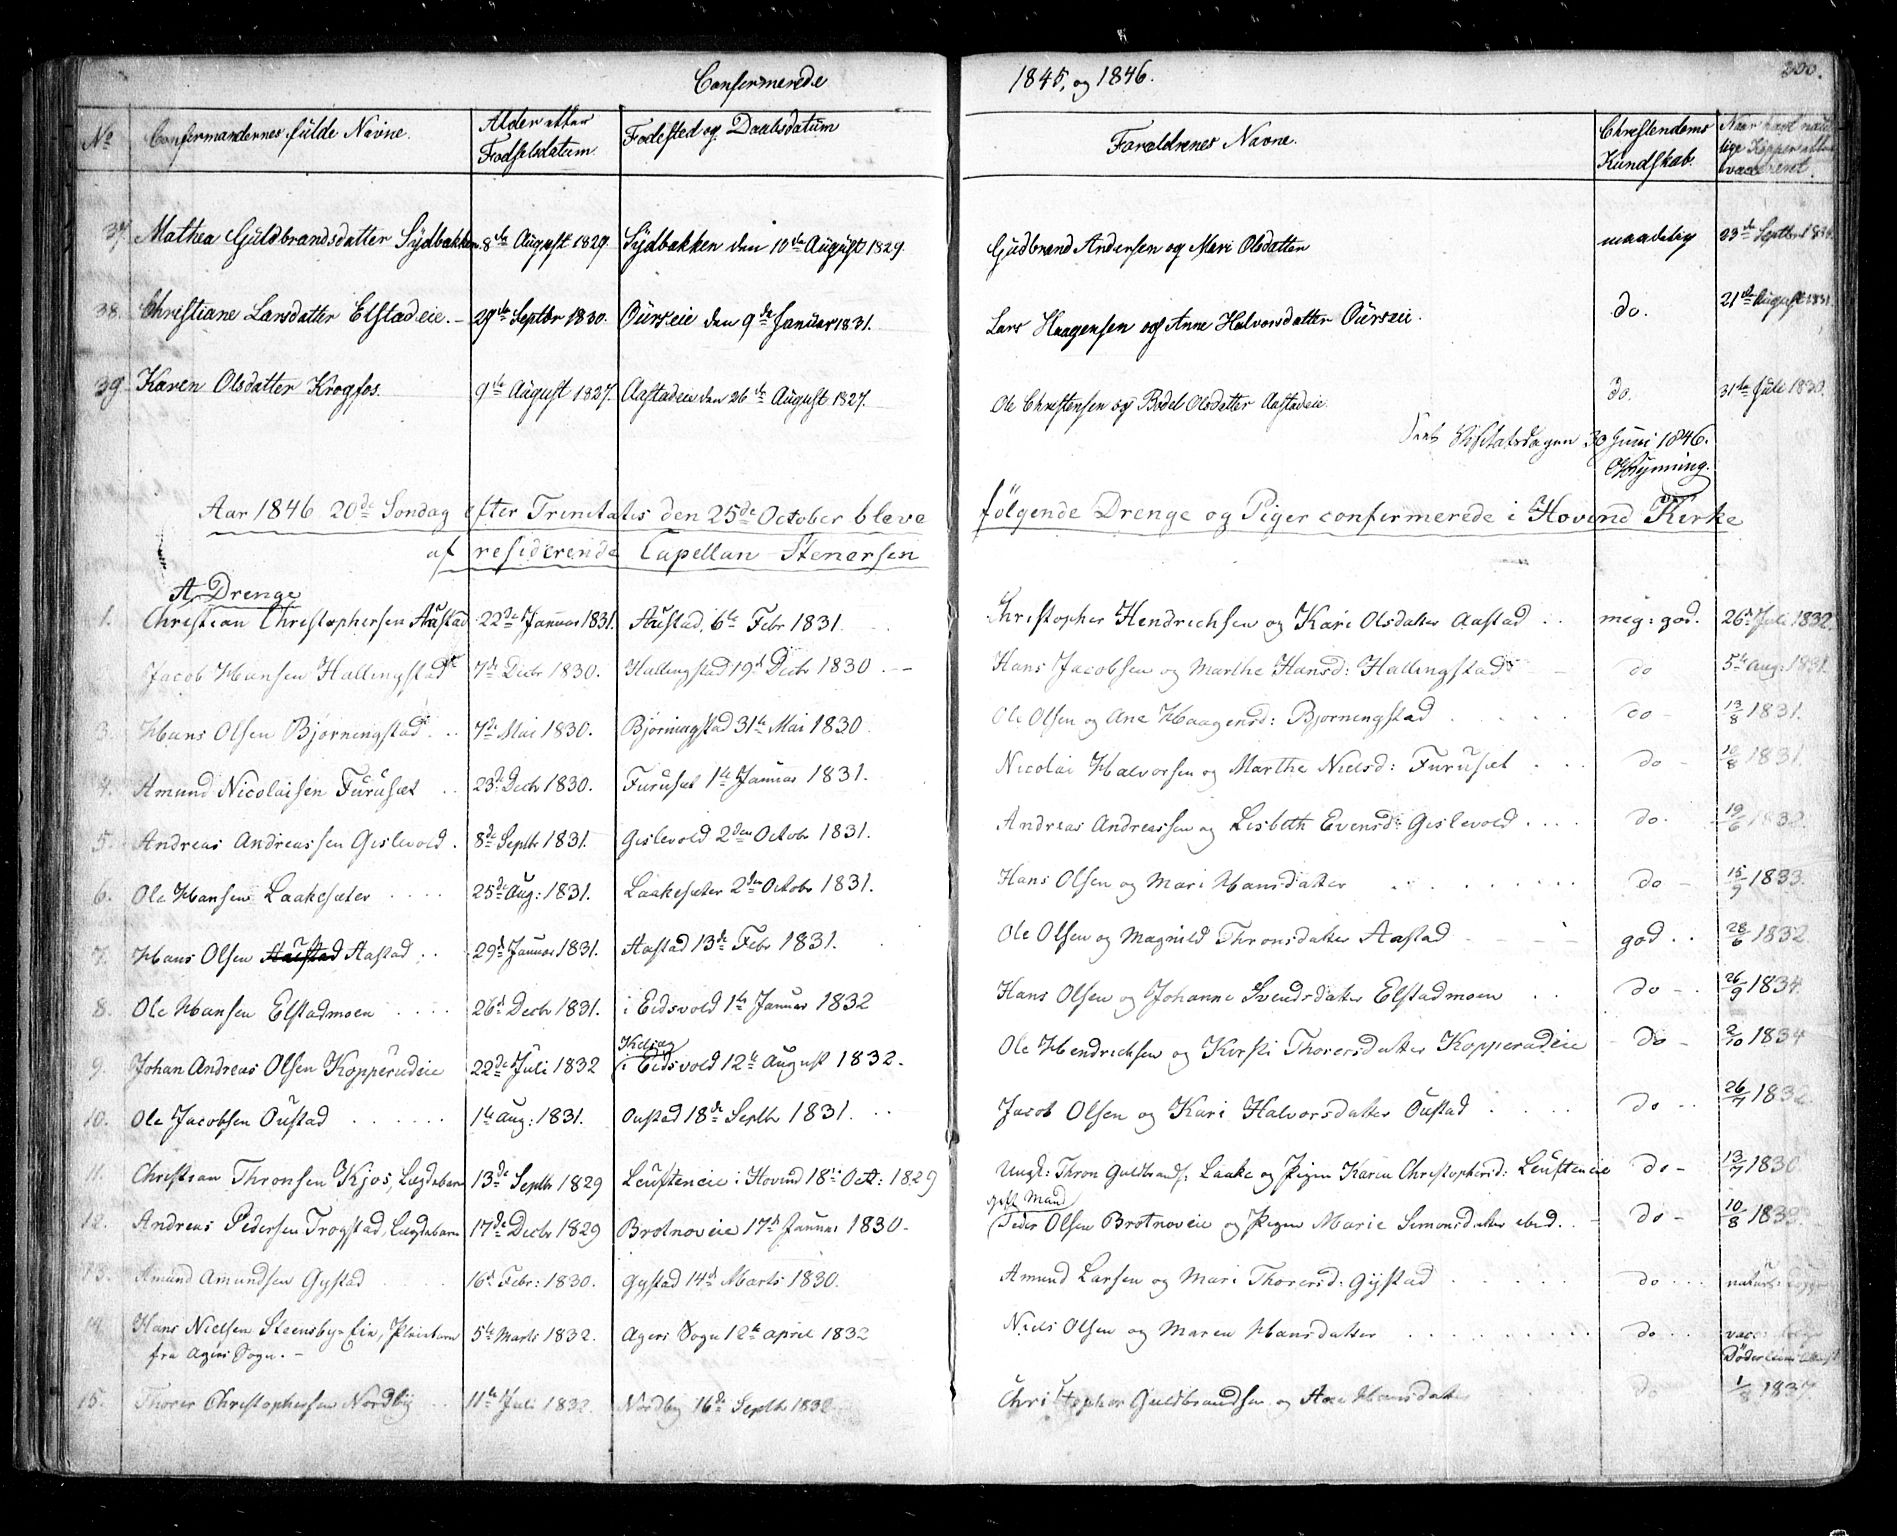 Confirmerede 1845, og 1846. 200.
No Confirmandernes fulde Navne. Alder efter Fødselsdatum. Fødested og Daabsdatum Forældrenes Navne. Christendoms Kundskab. Naar havt naturlige Kopper eller vaccineret.
37. Mathea Guldbrandsdatter Sydbakken 8de August 1829 Sydbakken den 10de August 1829. Gudbrand Andersen og Mari Olsdatter maadelig 23de Septbr
38. Christiane Larsdatter Elstadeie. 29de Septbr 1830. Ourseie den 9de Januar 1831. Lars Haagensen og Anne Halvorsdatter Ourseie. do. 21de August 1831
39. Karen Olsdatter Krogfos. 9de August 1827. Aastadeie den 26de August 1827. Ole Christensen og Bodel Olsdatter Aastadeie. do. 31te Juli 1830.
Visitatsdagen 30 Juni 1846.
Aar 1846 20de Sondag efter Trinitatis den 25de October bleve følgende Drenge og Piger confirmerede i Hovind Kirke
af residerende Capellan Stenersen
A. Drenge
1. Christian Christophersen Aastad 22de Januar 1831. Aastad, 6te Febr 1831. Christopher Hendrichsen og Kari Olsdatter Aastad meg: god. 26de Juli 1832.
Jacob Hansen Hallingstad 7de Decbr 1830. Hallingstad 19de Decbr 1830. Hans Jacobsen og Marthe Hansd: Hallingstad do 5te Aug: 1831.
3. Hans Olsen Bjørningstad 7de Mai 1830. Bjørningstad 31te Mai 1830 Ole Olsen og Ane Haagensd: Bjørningstad do 13/8 1831.
4. Amund Nicolaisen Furuset 23de Decbr 1830. Furuset 1te Januar 1831. Nicolai Halvorsen og Marthe Nielsd: Furuset do 12/8 1831.
5. Andreas Andreassen Gislevold. 8de Septbr 1831. Gislevold 2den Octobr 1831. Andreas Andreassen og Lisbeth Evensd: Gislevold do. 19/6 1832.
6. Ole Hansen Laakesæter 25de Aug: 1831. Laakesæter 2den Octobr 1831. Hans Olsen og Mari Hansdatter do 15/9 1833.
7. Hans Olsen Aastad Aastad 29de Januar 1831. Aastad 13de Febr 1831. Ole Olsen og Magnild Thronsdatter Aastad god 28/6 1832
8. Ole Hansen Elstadmoen 26de Decbr 1831. i Eidsvold 1te Januar 1832 Hans Olsen og Johanne Svendsdatter Elstadmoen do 26/9 1834.
9. Johan Andreas Olsen Kopperudeie 22de Juli 1832 i Eidsvold 12te August 1832. Ole Hendrichsen og Kirsti Thorersdatter Kopperudeie do 2/10 1834
10. Ole Jacobsen Oustad 1te Aug: 1831. Oustad 18de Septbr 1831. Jacob Olsen og Kari Halvorsdatter Oustad do 26/7 1832.
11. Christian Thronsen Kjos, Lægdebarn 13de Septbr 1829 Leufteneie i Hovind 18de Oct: 1829 Ungk: Thron Guldbrands: Laake og Pigen Karen Christophersd: Leufteneie do 13/7 1830
gift Mand
12. Andreas Pedersen Trogstad, Lægdebarn 17de Decbr 1829 Brotnoveie 17de Januar 1830. Peder Olsen Brotnoveie og Pigen Marie Simonsdatter ibid. do 10/8 1833.
13. Amund Amundsen Gystad 16de Febr: 1830. Gystad 14de Marts 1830. Amund Larsen og Mari Thorersd: Gystad do naturl:
14. Hans Nielsen Steensby-Eie, Pleiebarn 5te Marts 1832. Agers Sogn 12te April 1832 Niels Olsen og Maren Hansdatter do
fra Agers Sogn.
15. Thorer Christophersen Nordby 11te Juli 1832. Nordby 16de Septbr 1832 Christopher Guldbrandsen og Ane Hansdatter do 1/8 1837